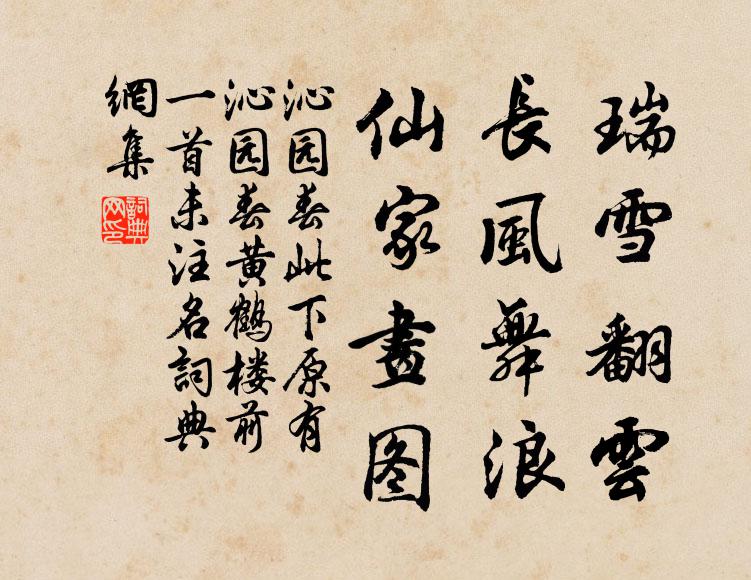 瑞雪翻雲
長風舞浪
仙家畫图
沁园春此下原有
沁园春黄鹤楼前
一首未注名詞典
網集
詞典
网印